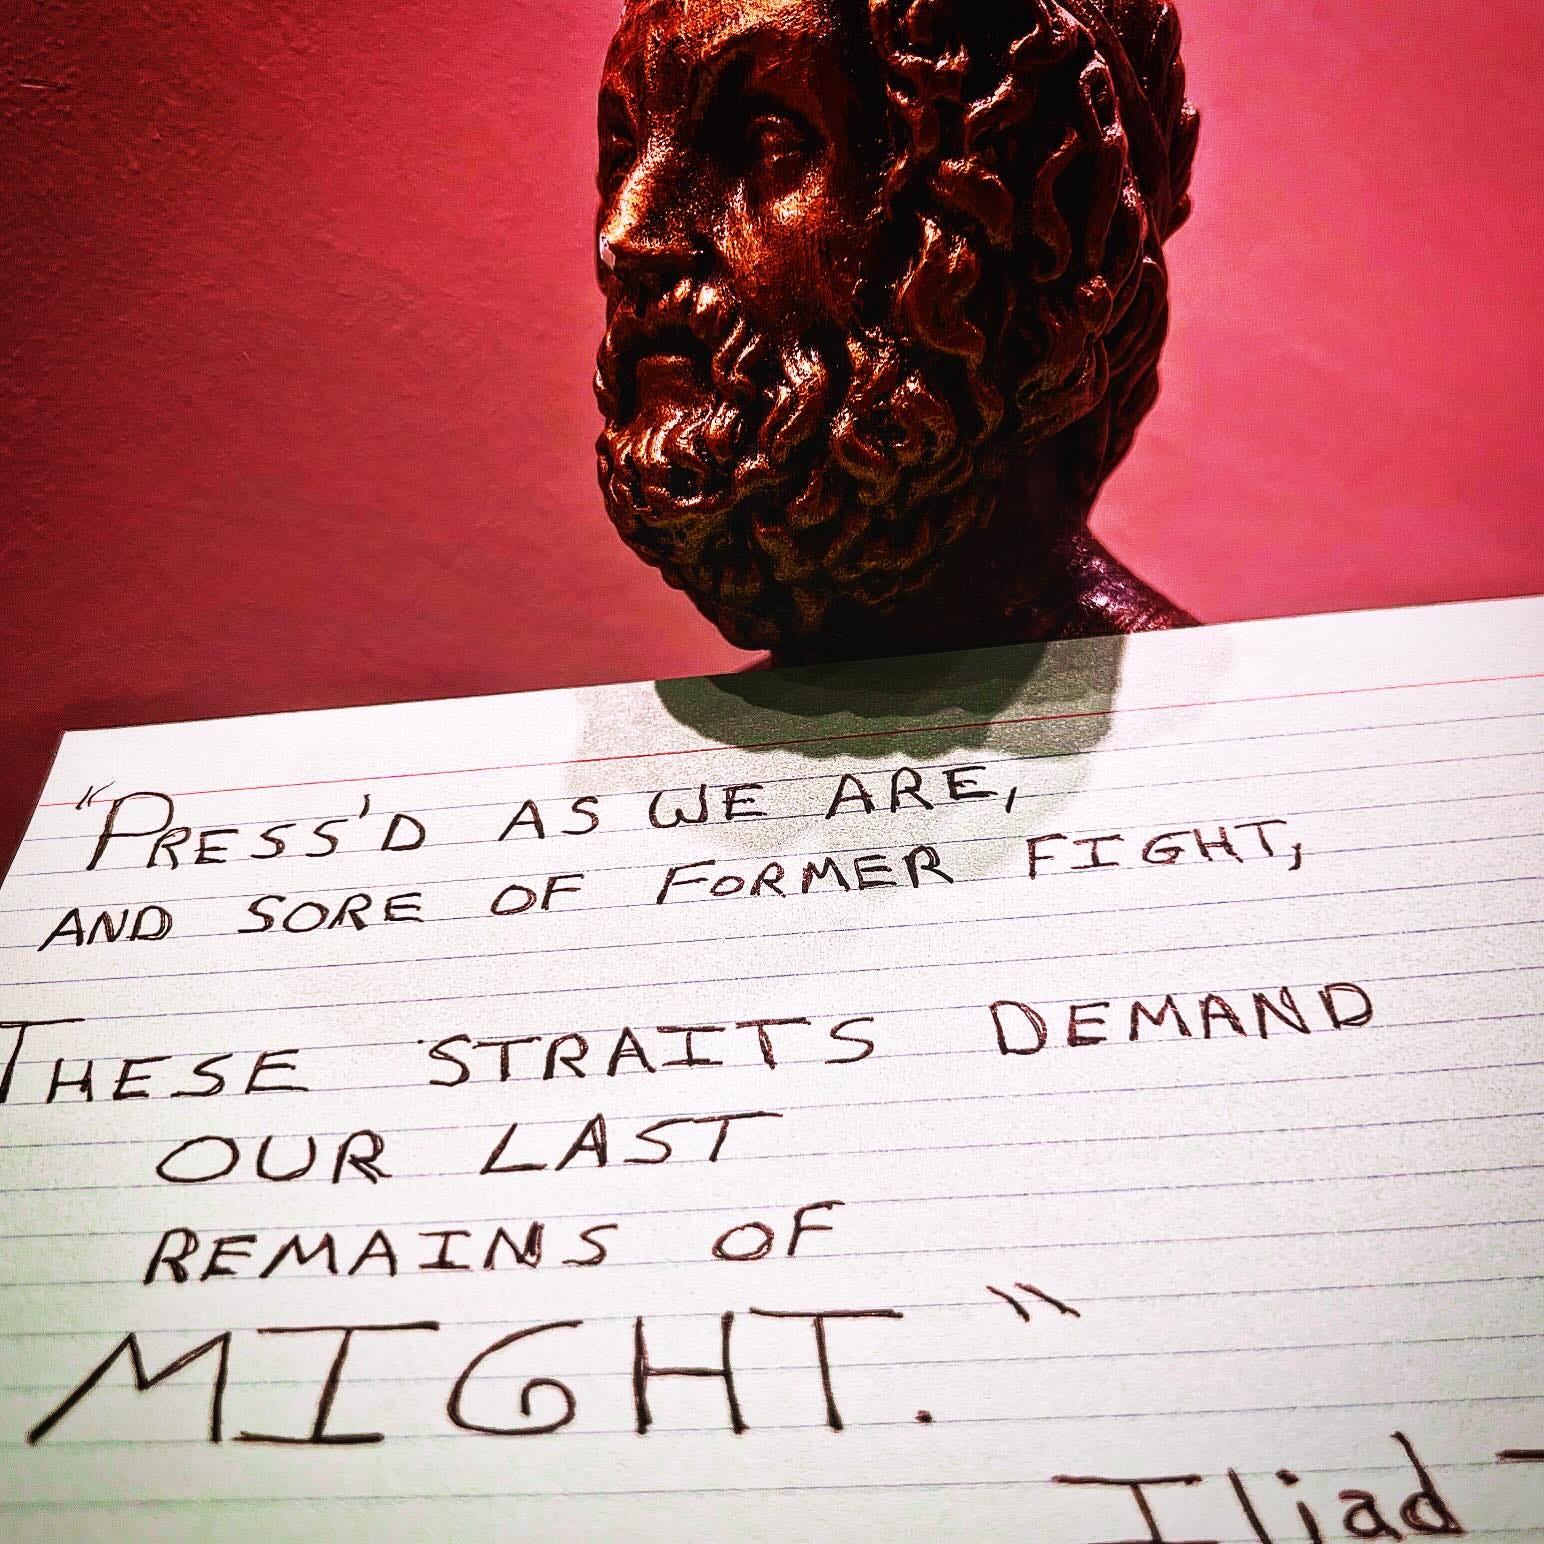 "PRESS'D AS WE ARE,
AND SORE OF FORMER FIGHT,
THESE STRAITS DEMAND
OUR LAST
REMAINS OF
MIGHT."
Iliad -